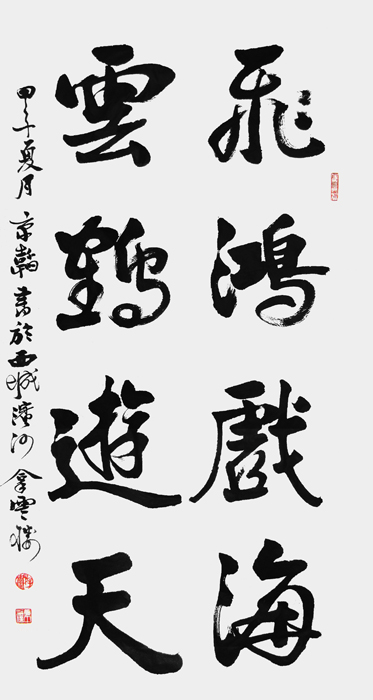 飛鴻戲海
雲鶴遊天
甲午夏月京翰書於西城河雲樓